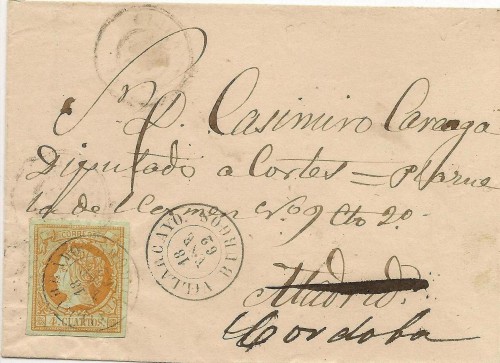 Sr. D. Casimiro Caranza
Diputado a Cortes = Plazue
la del Carmen No. 9 Cto 2o.
Madrid
Cordoba
VILLARCAYO. BURGOS.
18
62
CORREOS
4 CUARTOS